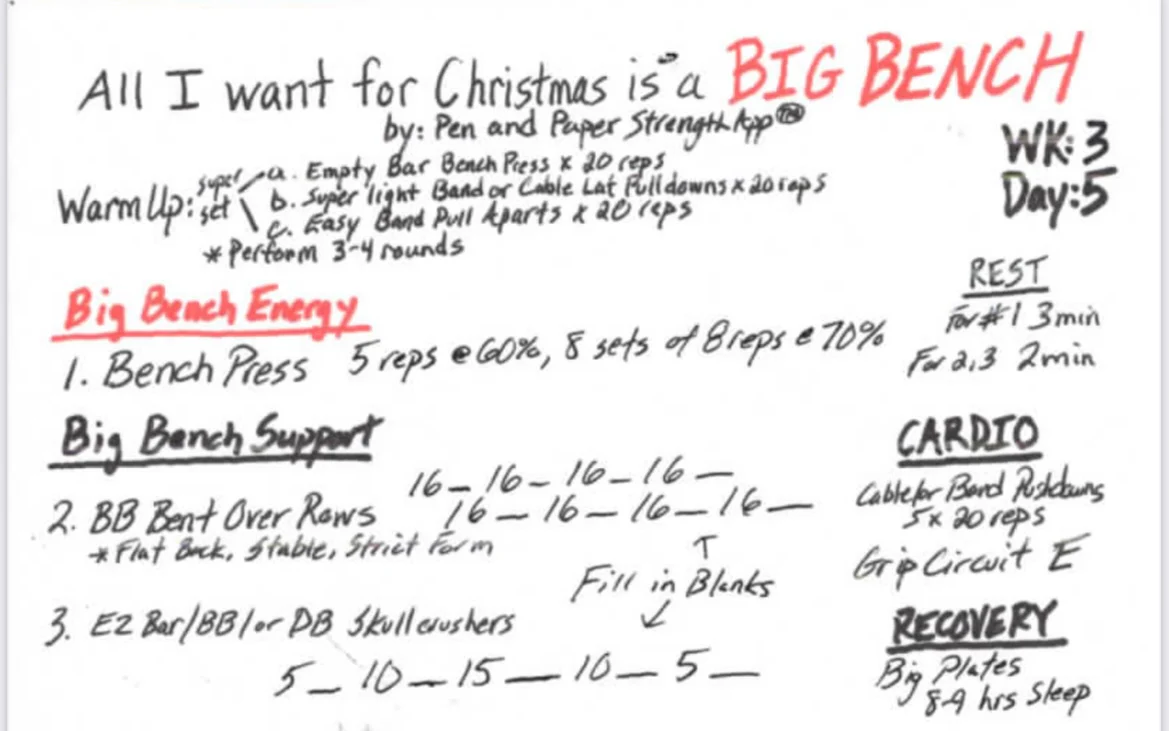 All I want for Christmas is a BIG BENCH
by: Pen and Paper Strength App™
WK: 3
Day: 5
Warm Up: super set
a. Empty Bar Bench Press x 20 reps
b. Super light Band or Cable Lat Pulldowns x 20 reps
c. Easy Band Pull Aparts x 20 reps
* Perform 3-4 rounds
Big Bench Energy
1. Bench Press 5 reps @ 60%, 8 sets of 8 reps @ 70%
REST
For #1 3min
For 2,3 2min
Big Bench Support
2. BB Bent Over Rows
16 _ 16 _ 16 _ 16 _
16 _ 16 _ 16 _ 16 _
* Flat Back, Stable, Strict Form
↑
Fill in Blanks
↓
3. EZ Bar/BB/or DB Skullcrushers
5 _ 10 _ 15 _ 10 _ 5 _
CARDIO
Cable/or Band Pushdowns
5 x 20 reps
Grip Circuit E
RECOVERY
Big Plates
8-9 hrs Sleep